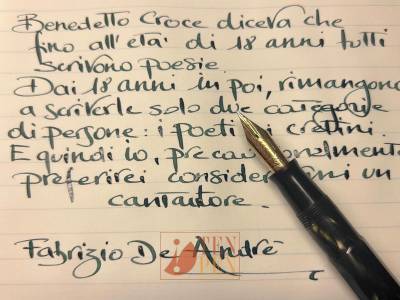 Benedetto Croce diceva che
fino all'età di 18 anni tutti
scrivono poesie.
Dai 18 anni in poi, rimangono
a scriverle solo due categorie
di persone: i poeti e i cretini.
E quindi io, precauzionalmente
preferirei considerarmi un
cantautore.
Fabrizio De Andrè